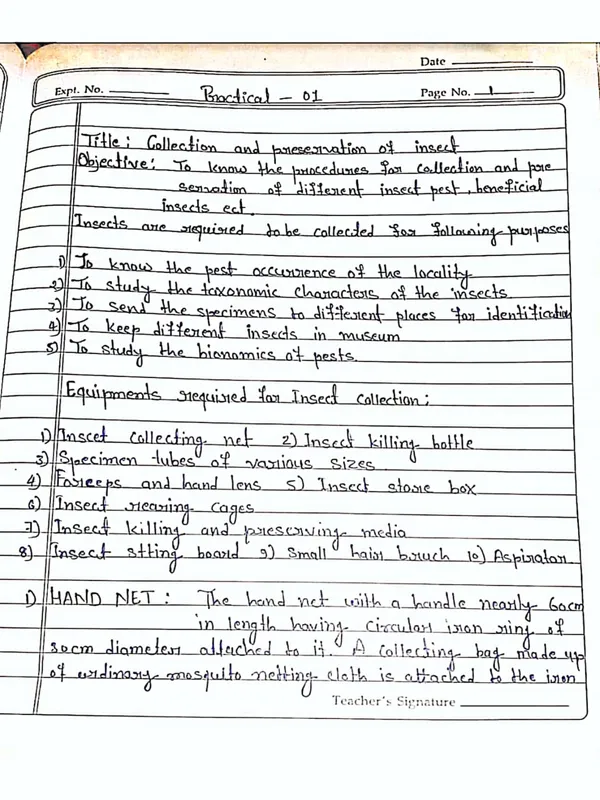 Date
Expt. No. Practical - 01 Page No. 1
Title: Collection and preservation of insect
Objective: To know the procedures for collection and pre
servation of different insect pest, beneficial
insects ect.
Insects are required to be collected for following purposes
1) To know the pest occurrence of the locality
2) To study the taxonomic characters of the insects.
3) To send the specimens to different places for identification
4) To keep different insects in museum
5) To study the bionomics of pests.
Equipments required for Insect collection:
1) Inscet collecting net 2) Insect killing bottle
3) Specimen tubes of various sizes
4) Foreeps and hand lens 5) Insect store box
6) Insect rearing cages
7) Insect killing and preserving media
8) Insect stting board 9) Small hair bruch 10) Aspirator
1) HAND NET: The hand net with a handle nearly 60cm
in length having circular iron ring of
30cm diameter attached to it. A collecting bag made up
of ordinary mosquito netting cloth is attached to the iron
Teacher's Signature